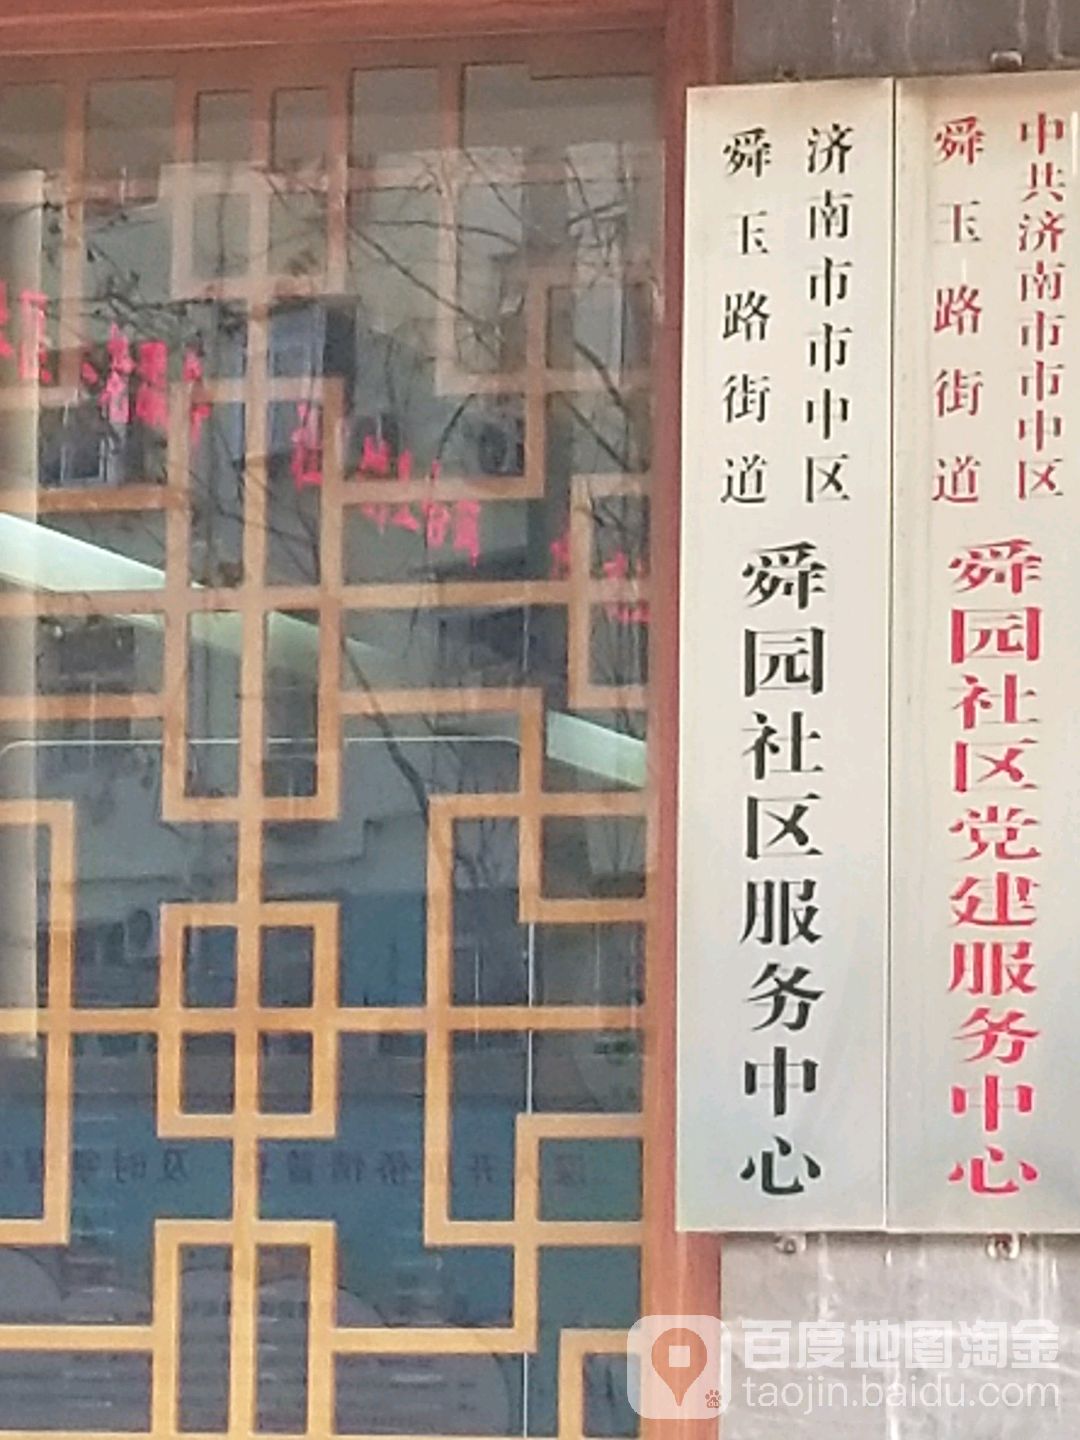 中共济南市市中区
舜玉路街道
舜园社区党建服务中心
济南市市中区
舜玉路街道
舜园社区服务中心
百度地图淘金
taojin.baidu.com